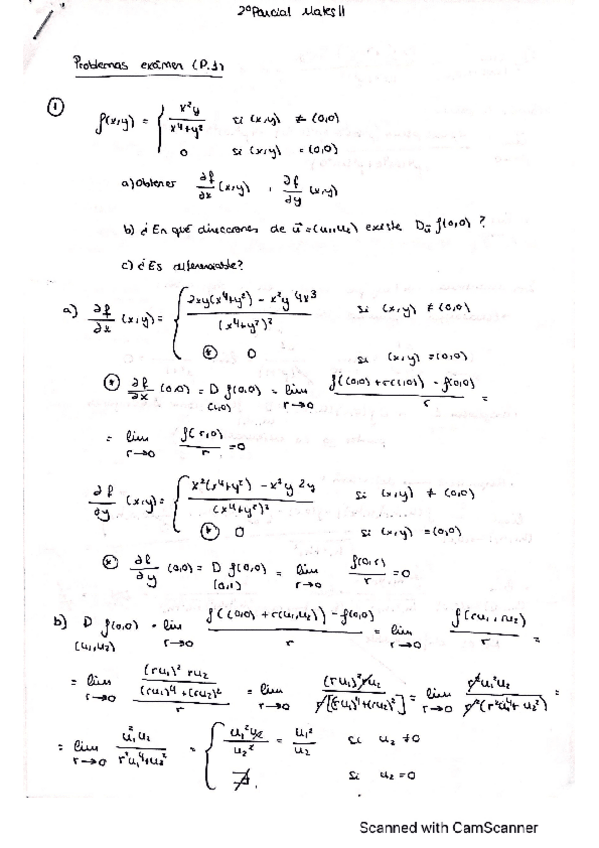 2º Parcial Mates II
Problemas examen (P.1)
① f(x,y) = { x²y / x⁴+y² si (x,y) ≠ (0,0)
0 si (x,y) = (0,0)
a) Obtener ∂f/∂x (x,y) , ∂f/∂y (x,y)
b) ¿En qué direcciones de u⃗ = (u₁,u₂) existe D_u⃗ f(0,0)?
c) ¿Es diferenciable?
a) ∂f/∂x (x,y) = { 2xy(x⁴+y²) - x²y 4x³ / (x⁴+y²)² si (x,y) ≠ (0,0)
⊛ 0 si (x,y) = (0,0)
⊛ ∂f/∂x (0,0) = D_(1,0) f(0,0) = lim_r→0 f((0,0)+r(1,0)) - f(0,0) / r =
= lim_r→0 f(r,0) / r = 0
∂f/∂y (x,y) = { x²(x⁴+y²) - x²y 2y / (x⁴+y²)² si (x,y) ≠ (0,0)
⊛ 0 si (x,y) = (0,0)
⊛ ∂f/∂y (0,0) = D_(0,1) f(0,0) = lim_r→0 f(0,r) / r = 0
b) D_(u₁,u₂) f(0,0) = lim_r→0 f((0,0)+r(u₁,u₂)) - f(0,0) / r = lim_r→0 f(ru₁, ru₂) / r =
= lim_r→0 (ru₁)² ru₂ / (ru₁)⁴+(ru₂)² / r = lim_r→0 (ru₁)² ru₂ / r[(ru₁)⁴+(ru₂)²] = lim_r→0 r²u₁²u₂ / r²(r²u₁⁴+u₂²) =
= lim_r→0 u₁²u₂ / r²u₁⁴+u₂² = { u₁²u₂ / u₂² = u₁² / u₂ si u₂ ≠ 0
∄. si u₂ = 0
Scanned with CamScanner